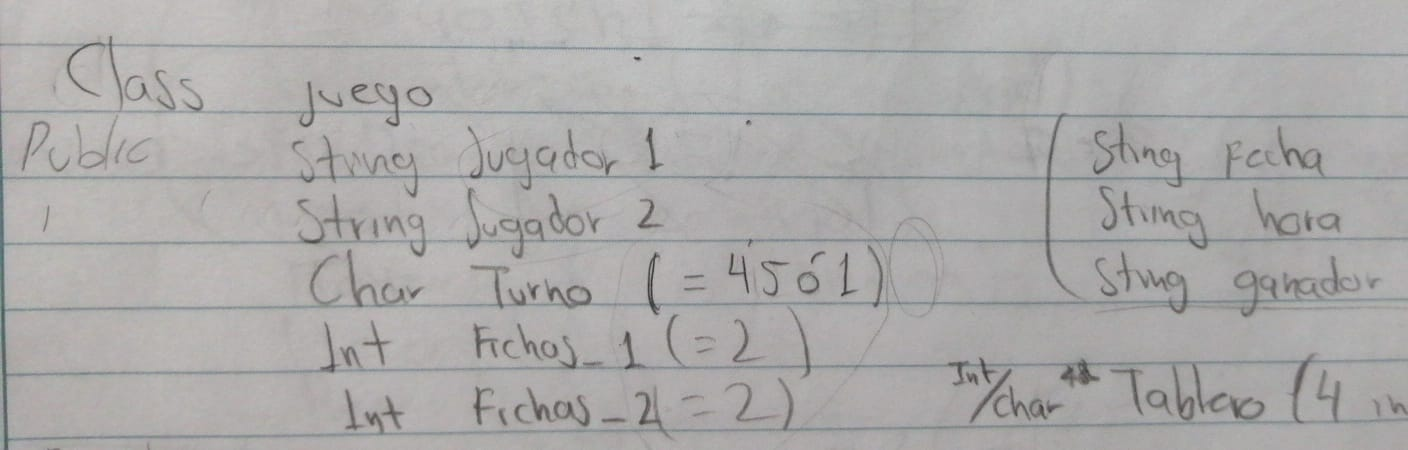 Class juego
Public String Jugador 1
String Jugador 2
Char Turno (= 45ó1)
Int Fichas_1 (=2)
Int Fichas_2 (=2)
String Fecha
String hora
String ganador
Int/char Tablero (4 in